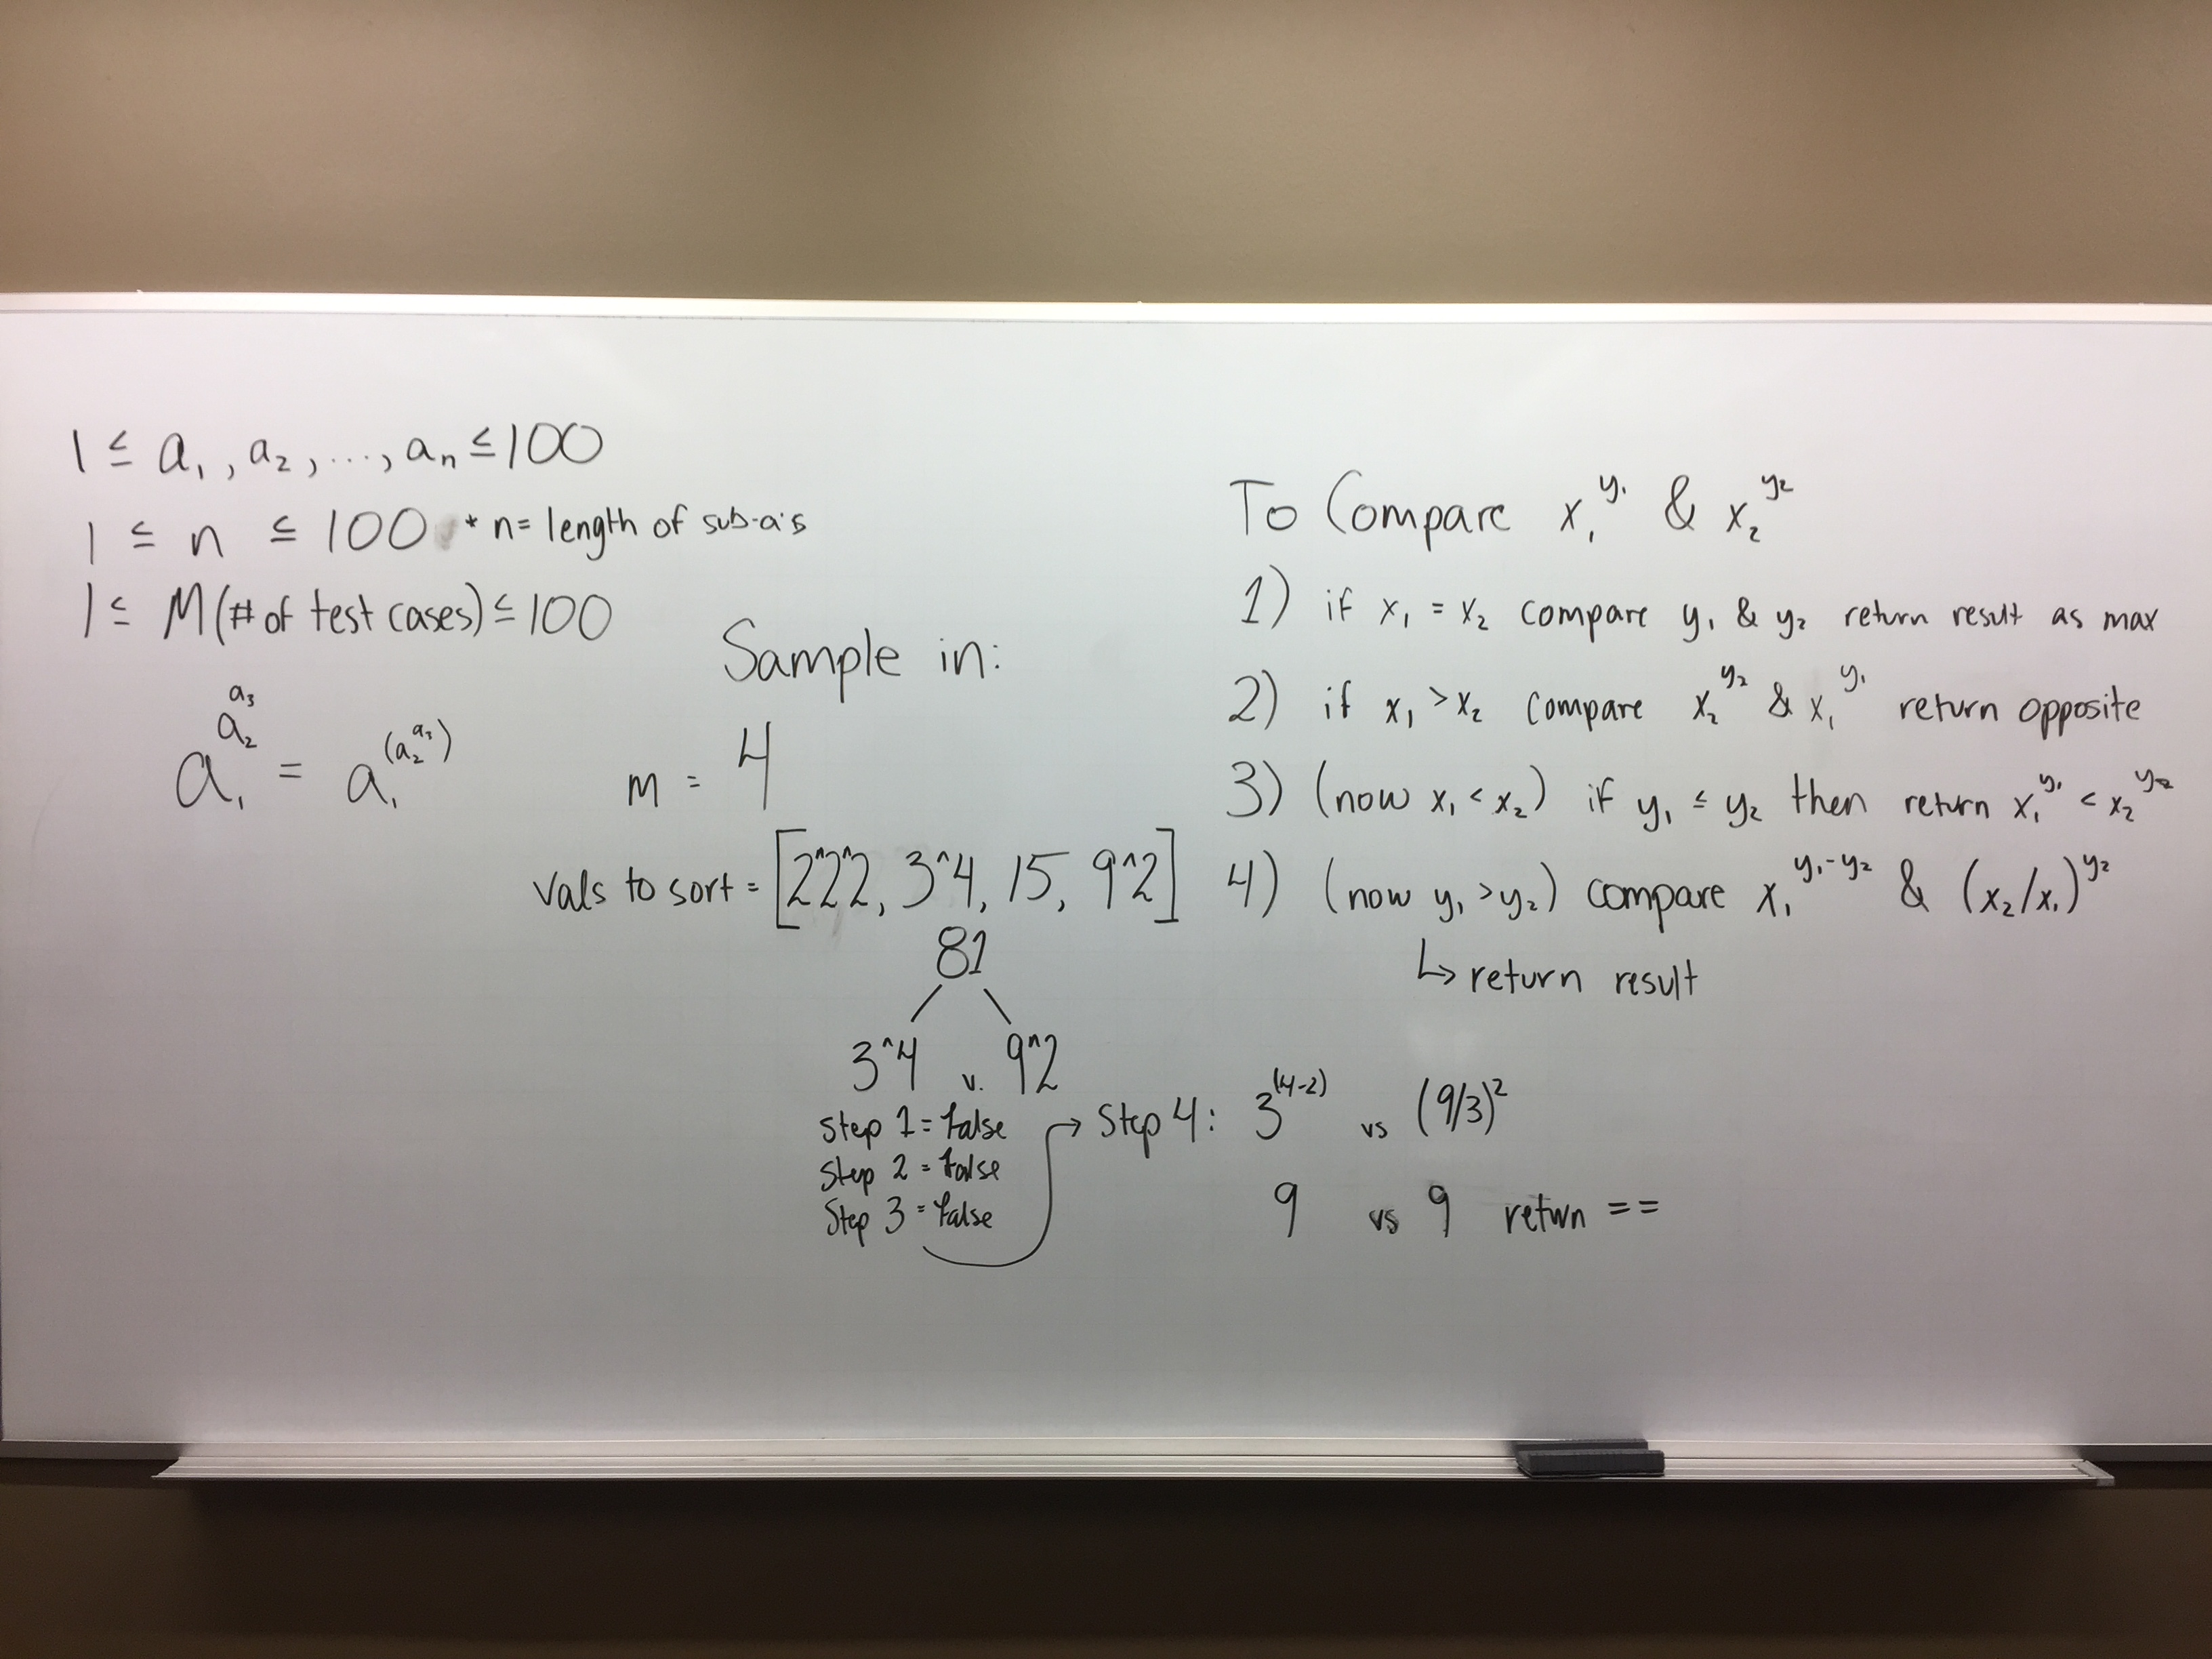 1 ≤ a₁, a₂, ..., aₙ ≤ 100
1 ≤ n ≤ 100 * n = length of sub-a's
1 ≤ M (# of test cases) ≤ 100
a₁^a₂^a₃ = a₁^(a₂^a₃)
Sample in:
m = 4
Vals to sort = [2^2^2, 3^4, 15, 9^2]
81
3^4 v. 9^2
Step 1 = false
Step 2 = false
Step 3 = false
To Compare x₁^y₁ & x₂^y₂
1) if x₁ = x₂ compare y₁ & y₂ return result as max
2) if x₁ > x₂ compare x₂^y₂ & x₁^y₁ return opposite
3) (now x₁ < x₂) if y₁ ≤ y₂ then return x₁^y₁ < x₂^y₂
4) (now y₁ > y₂) compare x₁^y₁-y₂ & (x₂/x₁)^y₂
↳ return result
→ Step 4: 3^(4-2) vs (9/3)²
9 vs 9 return ==